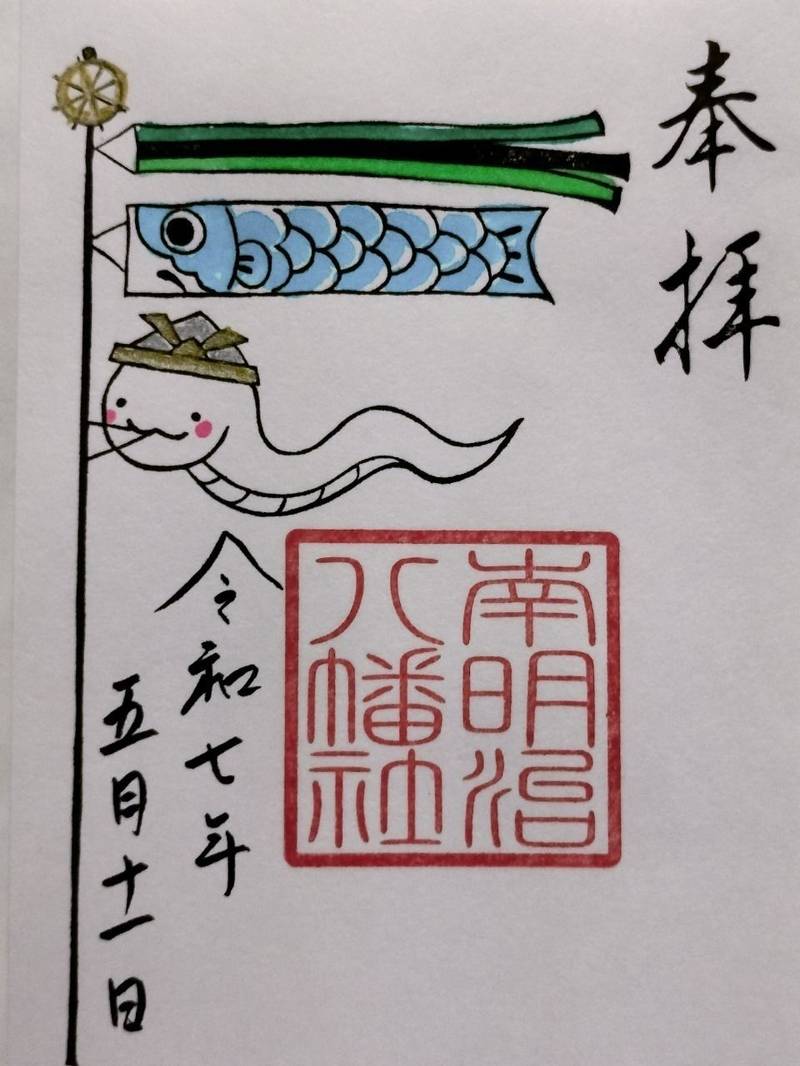 奉拝
南明治
八幡社
令和七年
五月十一日